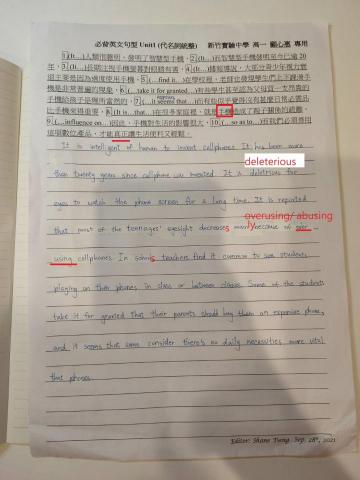 必背英文句型 Unit1 (代名詞統整) 新竹實驗中學 高一 劉心蕙 專用
1.(It…)人類很聰明，發明了智慧型手機。2.(It…)而智慧型手機發明至今已逾20
年。3.(It…)長期注視手機螢幕對眼睛有害。4.(It…)據報導說，大部分青少年視力衰
退主要是因為過度使用手機。5.(…find it…)在學校裡，老師也發現學生們上下課滑手
機是非常普遍的現象。6.(…take it for granted…)有些學生甚至認為父母買一支昂貴的
手機給孩子是理所當然的，7.(…it seems that…)而有些似乎覺得沒有甚麼日常必需品
比手機來得重要。8.(It is that…)在很多家庭裡，就是手機造成了親子關係的疏離。
9.(…influence on…)因此，手機對生活的影響很大，10.(…so as to…)而我們必須善用
這項數位產品，才能真正讓生活便利又輕鬆。
It is intelligent of human to invent cellphones. It has been more
deleterious
than twenty years since cellphone was invented. It is deletrious for
eyes to watch the phone screen for a long time. It is reported
overusing/ abusing
that most of the teenages' eyesight decreases mainly because of over-
using cellphones. In schools teachers find it common to see students
playing on their phones in class or between classes. Some of the students
take it for granted that their parents should buy them an expensive phone,
and it seems that some consider there's no daily necessities more vital
than phones.
Editor: Shane Tung Sep. 28th, 2021